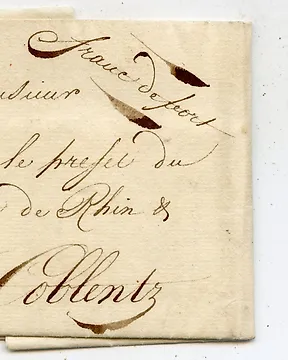 franc de port
nsieur
le prefet du
de Rhin &
Coblentz